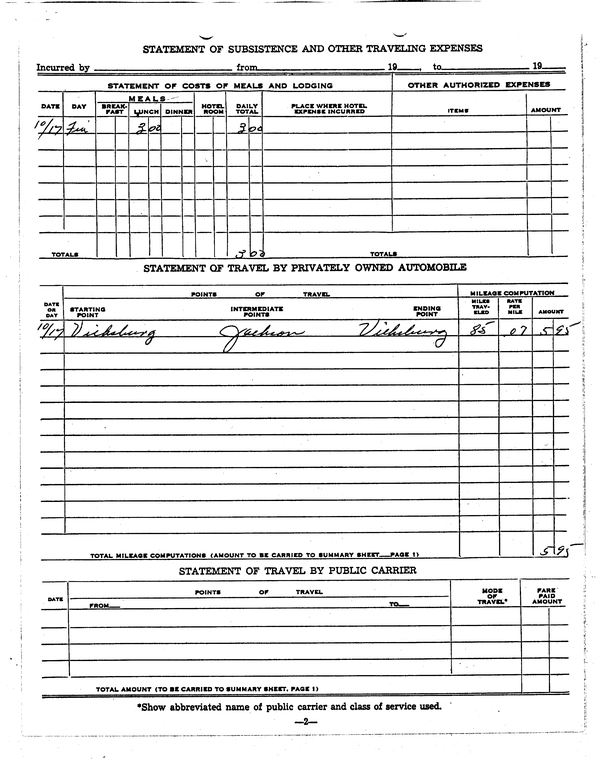 STATEMENT OF SUBSISTENCE AND OTHER TRAVELING EXPENSES
Incurred by from 19 , to 19
STATEMENT OF COSTS OF MEALS AND LODGING OTHER AUTHORIZED EXPENSES
DATE DAY MEALS BREAK-FAST LUNCH DINNER HOTEL ROOM DAILY TOTAL PLACE WHERE HOTEL EXPENSE INCURRED ITEMS AMOUNT
10/17 Fri 3 00 3 00
TOTALS 3 00 TOTALS
STATEMENT OF TRAVEL BY PRIVATELY OWNED AUTOMOBILE
POINTS OF TRAVEL MILEAGE COMPUTATION
DATE OR DAY STARTING POINT INTERMEDIATE POINTS ENDING POINT MILES TRAV-ELED RATE PER MILE AMOUNT
10/17 Vicksburg Jackson Vicksburg 85 .07 5 95
TOTAL MILEAGE COMPUTATIONS (AMOUNT TO BE CARRIED TO SUMMARY SHEET PAGE 1) 5 95
STATEMENT OF TRAVEL BY PUBLIC CARRIER
DATE POINTS OF TRAVEL MODE OF TRAVEL* FARE PAID AMOUNT
FROM TO
TOTAL AMOUNT (TO BE CARRIED TO SUMMARY SHEET, PAGE 1)
*Show abbreviated name of public carrier and class of service used.
—2—